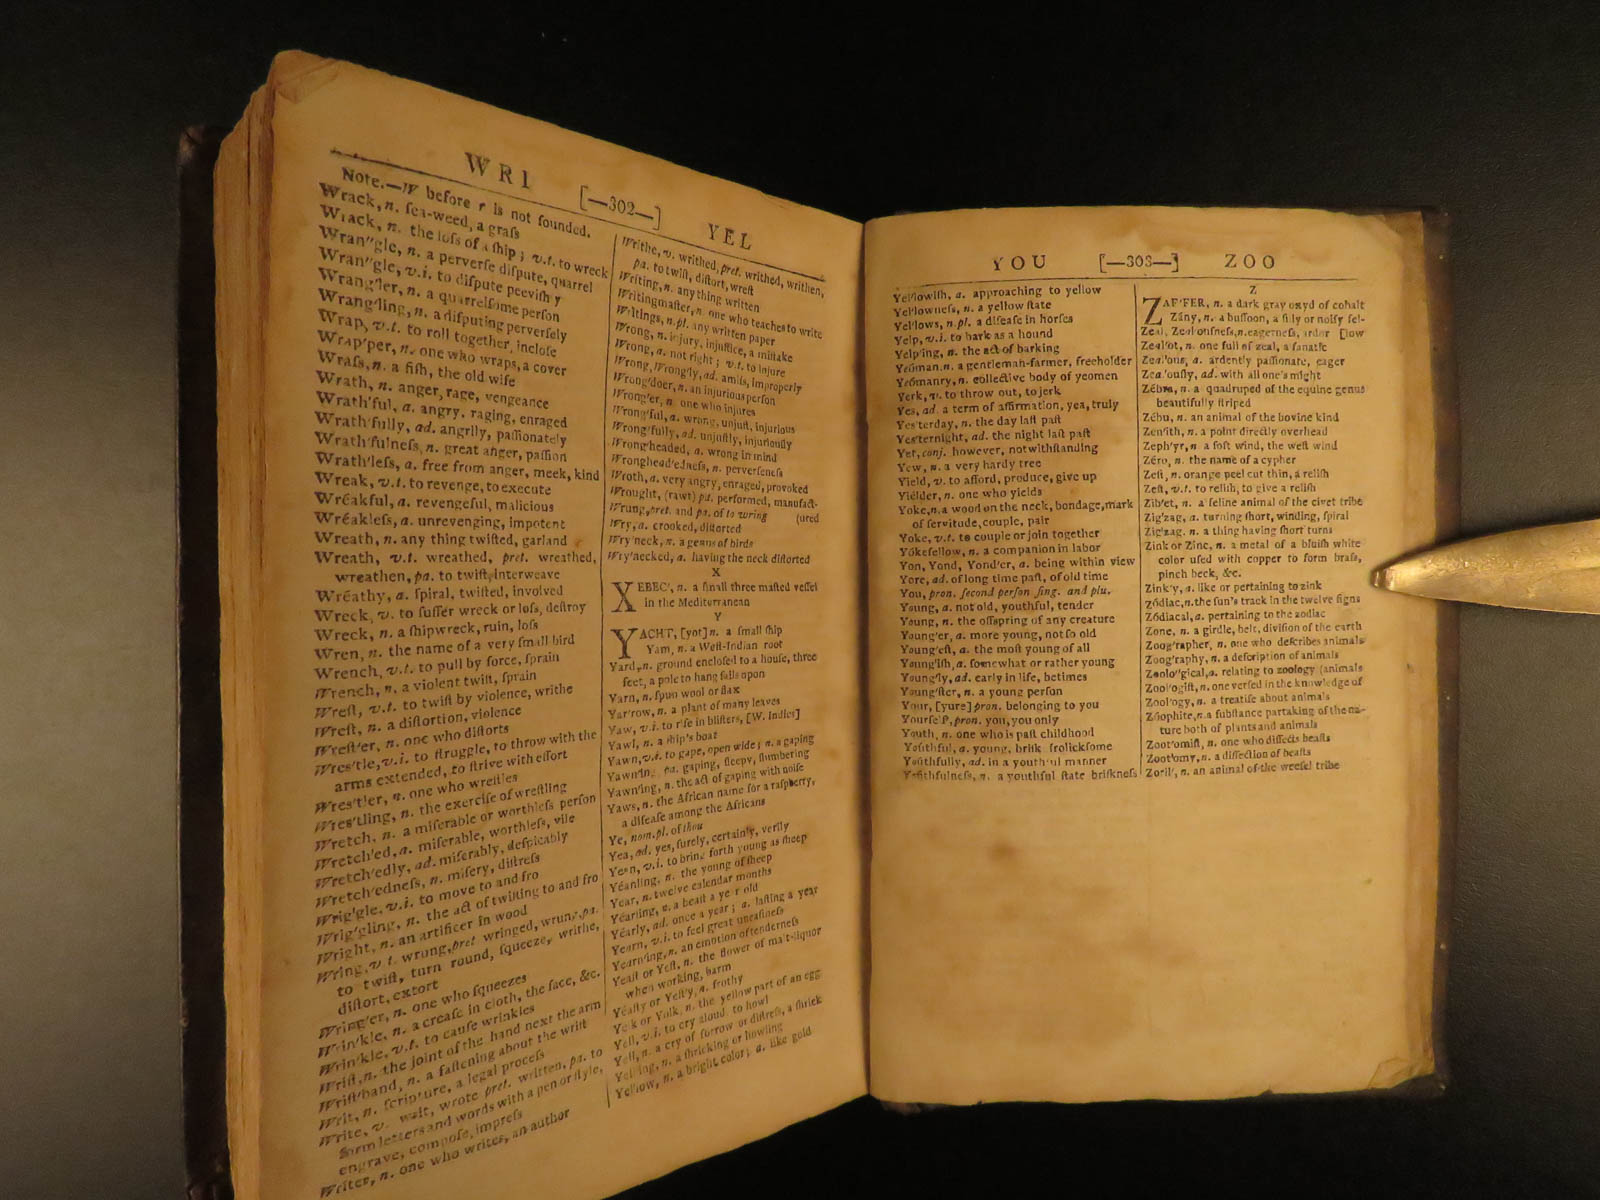 WRI [—302—] YEL
Note.—W before r is not ſounded.
Wrack, n. ſea-weed, a graſs
Wrack, n. the loſs of a ſhip; v.t. to wreck
Wran"gle, n. a perverſe diſpute, quarrel
Wran"gle, v.i. to diſpute peeviſhly
Wrang'ler, n. a quarrelſome perſon
Wrang'ling, n. a diſputing perverſely
Wrap, v.t. to roll together, incloſe
Wrap'per, n. one who wraps, a cover
Wraſs, n. a fiſh, the old wife
Wrath, n. anger, rage, vengeance
Wrath'ful, a. angry, raging, enraged
Wrath'fully, ad. angrily, paſſionately
Wrath'fulneſs, n. great anger, paſſion
Wrath'leſs, a. free from anger, meek, kind
Wreak, v.t. to revenge, to execute
Wréakful, a. revengeful, malicious
Wréakleſs, a. unrevenging, impotent
Wreath, n. any thing twiſted, garland
Wreath, v.t. wreathed, pret. wreathed,
wreathen, pa. to twiſt, interweave
Wréathy, a. ſpiral, twiſted, involved
Wreck, v. to ſuffer wreck or loſs, deſtroy
Wreck, n. a ſhipwreck, ruin, loſs
Wren, n. the name of a very ſmall bird
Wrench, v.t. to pull by force, ſprain
Wrench, n. a violent twiſt, ſprain
Wreſt, v.t. to twiſt by violence, writhe
Wreſt, n. a diſtortion, violence
Wreſt'er, n. one who diſtorts
Wres'tle, v.i. to ſtruggle, to throw with the
arms extended, to ſtrive with effort
Wres'tler, n. one who wreſtles
Wres'tling, n. the exerciſe of wreſtling
Wretch, n. a miſerable or worthleſs perſon
Wretch'ed, a. miſerable, worthleſs, vile
Wretch'edly, ad. miſerably, deſpicably
Wretch'edneſs, n. miſery, diſtreſs
Wrig'gle, v.i. to move to and fro
Wrig'gling, n. the act of twiſting to and fro
Wright, n. an artificer in wood
Wring, v.t. wrung, pret. wringed, wrung, pa.
to twiſt, turn round, ſqueeze, writhe,
diſtort, extort
Wring'er, n. one who ſqueezes
Wrin'kle, n. a creaſe in cloth, the face, &c.
Wrin'kle, v.t. to cauſe wrinkles
Wriſt, n. the joint of the hand next the arm
Wriſt'band, n. a faſtening about the wriſt
Writ, n. ſcripture, a legal proceſs
Write, v. writ, wrote pret. written, pa. to
form letters and words with a pen or ſtyle,
engrave, compoſe, impreſs
Writer, n. one who writes, an author
Writhe, v. writhed, pret. writhed, writhen,
pa. to twiſt, diſtort, wreſt
Writing, n. any thing written
Writingmaſter, n. one who teaches to write
Writings, n.pl. any written paper
Wrong, n. injury, injuſtice, a miſtake
Wrong, a. not right; v.t. to injure
Wrong, Wrong'ly, ad. amiſs, improperly
Wrong'doer, n. an injurious perſon
Wrong'er, n. one who injures
Wrong'ful, a. wrong, unjuſt, injurious
Wrong'fully, ad. unjuſtly, injuriouſly
Wrong'headed, a. wrong in mind
Wronghead'edneſs, n. perverſeneſs
Wroth, a. very angry, enraged, provoked
Wrought, (rawt) pa. performed, manufact-
Wrung, pret. and pa. of to wring (ured
Wry, a. crooked, diſtorted
Wry'neck, n. a genus of birds
Wry'necked, a. having the neck diſtorted
X
XEBEC', n. a ſmall three maſted veſſel
in the Mediterranean
Y
YACHT, [yot] n. a ſmall ſhip
Yam, n. a Weſt-Indian root
Yard, n. ground encloſed to a houſe, three
feet, a pole to hang ſails upon
Yarn, n. ſpun wool or flax
Yar'row, n. a plant of many leaves
Yaw, v.i. to riſe in bliſters, [W. Indies]
Yawl, n. a ſhip's boat
Yawn, v.t. to gape, open wide; n. a gaping
Yawn'ing, pa. gaping, ſleepy, ſlumbering
Yawn'ing, n. the act of gaping with noiſe
Yaws, n. the African name for a raſpberry,
a diſeaſe among the Africans
Ye, nom. pl. of thou
Yea, ad. yes, ſurely, certainly, verily
Yean, v.i. to bring forth young as ſheep
Yéanling, n. the young of ſheep
Year, n. twelve calendar months
Yéarling, n. a beaſt a year old
Yéarly, ad. once a year; a. laſting a year
Yearn, v.i. to feel great uneaſineſs
Yearn'ing, n. an emotion of tenderneſs
Yeaſt or Yeſt, n. the flower of malt-liquor
when working, barm
Yéaſty or Yeſt'y, a. frothy
Yelk or Yolk, n. the yellow part of an egg
Yell, v.i. to cry aloud, to howl
Yell, n. a cry of ſorrow or diſtreſs, a ſhriek
Yel'ling, n. a ſhrieking or howling
Yel'low, n. a bright color; a. like gold
YOU [—303—] ZOO
Yel'lowiſh, a. approaching to yellow
Yel'lowneſs, n. a yellow ſtate
Yel'lows, n.pl. a diſeaſe in horſes
Yelp, v.i. to bark as a hound
Yelp'ing, n. the act of barking
Yeóman, n. a gentleman-farmer, freeholder
Yeómanry, n. collective body of yeomen
Yerk, v. to throw out, to jerk
Yes, ad. a term of affirmation, yea, truly
Yes'terday, n. the day laſt paſt
Yes'ternight, ad. the night laſt paſt
Yet, conj. however, notwithſtanding
Yew, n. a very hardy tree
Yield, v. to afford, produce, give up
Yiélder, n. one who yields
Yoke, n. a wood on the neck, bondage, mark
of ſervitude, couple, pair
Yoke, v.t. to couple or join together
Yókefellow, n. a companion in labor
Yon, Yond, Yond'er, a. being within view
Yore, ad. of long time paſt, of old time
You, pron. ſecond perſon ſing. and plu.
Young, a. not old, youthful, tender
Young, n. the offspring of any creature
Young'er, a. more young, not ſo old
Young'eſt, a. the moſt young of all
Young'iſh, a. ſomewhat or rather young
Young'ly, ad. early in life, betimes
Young'ſter, n. a young perſon
Your, [yure] pron. belonging to you
Yourſelf', pron. you, you only
Youth, n. one who is paſt childhood
Yoúthful, a. young, briſk frolickſome
Yoúthfully, ad. in a youthful manner
Yoúthfulneſs, n. a youthful ſtate briſkneſs
Z
ZAF'FER, n. a dark gray oxyd of cobalt
Zány, n. a buffoon, a ſilly or noiſy fel-
Zeal, Zeal'ouſneſs, n. eagerneſs, ardor [low
Zeal'ot, n. one full of zeal, a fanatic
Zeal'ous, a. ardently paſſionate, eager
Zeal'ouſly, ad. with all one's might
Zébra, n. a quadruped of the equine genus
beautifully ſtriped
Zébu, n. an animal of the bovine kind
Zen'ith, n. a point directly overhead
Zeph'yr, n. a ſoft wind, the weſt wind
Zéro, n. the name of a cypher
Zeſt, n. orange peel cut thin, a reliſh
Zeſt, v.t. to reliſh, to give a reliſh
Zib'et, n. a feline animal of the civet tribe
Zig'zag, a. turning ſhort, winding, ſpiral
Zig'zag, n. a thing having ſhort turns
Zink or Zinc, n. a metal of a bluiſh white
color uſed with copper to form braſs,
pinch beck, &c.
Zink'y, a. like or pertaining to zink
Zódiac, n. the ſun's track in the twelve ſigns
Zódiacal, a. pertaining to the zodiac
Zone, n. a girdle, belt, diviſion of the earth
Zoog'rapher, n. one who deſcribes animals
Zoog'raphy, n. a deſcription of animals
Zoolo"gical, a. relating to zoology (animals
Zool'ogiſt, n. one verſed in the knowledge of
Zool'ogy, n. a treatiſe about animals
Zóophite, n. a ſubſtance partaking of the na-
ture both of plants and animals
Zoot'omiſt, n. one who diſſects beaſts
Zoot'omy, n. a diſſection of beaſts
Zoril', n. an animal of the weeſel tribe